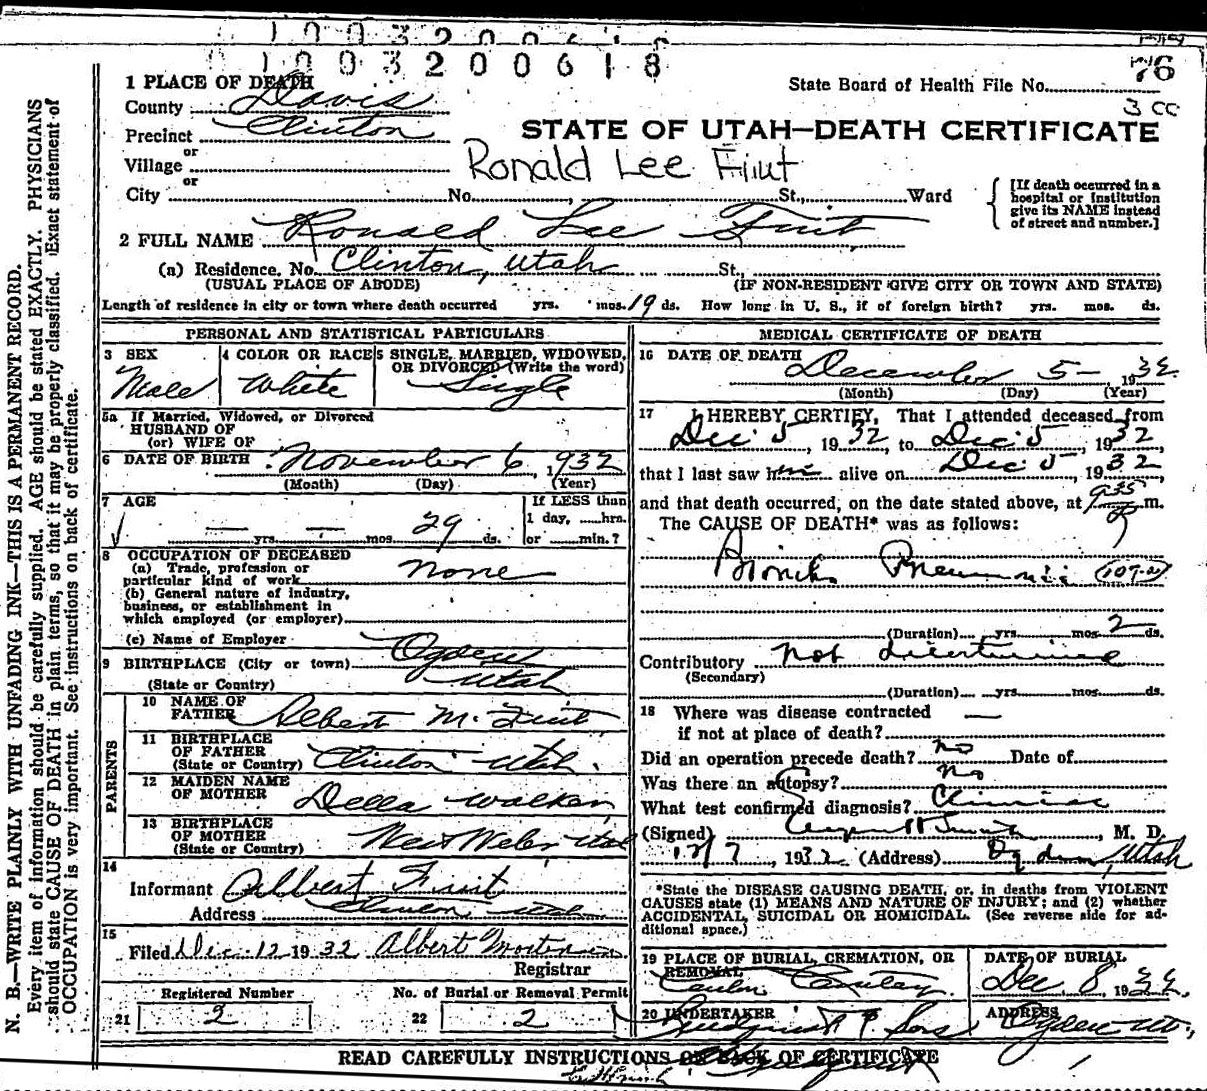 1003200618
1003200618
76
1 PLACE OF DEATH
State Board of Health File No.
3 cc
County Davis
Precinct Clinton
STATE OF UTAH—DEATH CERTIFICATE
or
Village
Ronald Lee
or
City No. , St., Ward
[If death occurred in a hospital or institution give its NAME instead of street and number.]
2 FULL NAME Ronald Lee
(a) Residence. No. Clinton, Utah St.,
(USUAL PLACE OF ABODE) (IF NON-RESIDENT GIVE CITY OR TOWN AND STATE)
Length of residence in city or town where death occurred yrs. mos. 19 ds. How long in U. S., if of foreign birth? yrs. mos. ds.
PERSONAL AND STATISTICAL PARTICULARS
3 SEX
Male
4 COLOR OR RACE
White
5 SINGLE, MARRIED, WIDOWED,
OR DIVORCED (Write the word)
Single
5a If Married, Widowed, or Divorced
HUSBAND OF
(or) WIFE OF
6 DATE OF BIRTH November 6, 1932
(Month) (Day) (Year)
7 AGE
— yrs. — mos. 29 ds.
If LESS than
1 day, ......hrn.
or ......min.?
8 OCCUPATION OF DECEASED
(a) Trade, profession or
particular kind of work none
(b) General nature of industry,
business, or establishment in
which employed (or employer)
(c) Name of Employer
9 BIRTHPLACE (City or town) Ogden
(State or Country) Utah
PARENTS
10 NAME OF
FATHER Albert M.
11 BIRTHPLACE
OF FATHER
(State or Country) Clinton Utah.
12 MAIDEN NAME
OF MOTHER Della Walker
13 BIRTHPLACE
OF MOTHER
(State or Country) West Weber Utah
14
Informant Albert
Address Clinton, Utah
15
Filed Dec. 12 1932 Albert
Registrar
Registered Number No. of Burial or Removal Permit
21 2 22 2
MEDICAL CERTIFICATE OF DEATH
16 DATE OF DEATH December 5- 1932.
(Month) (Day) (Year)
17 I HEREBY CERTIFY, That I attended deceased from
Dec 5, 1932, to Dec. 5, 1932
that I last saw him alive on Dec 5, 1932
and that death occurred, on the date stated above, at 935 P m.
The CAUSE OF DEATH* was as follows:
Broncho Pneumonia
(Duration) yrs. mos. 2 ds.
Contributory not determined
(Secondary)
(Duration) yrs. mos. ds.
18 Where was disease contracted —
if not at place of death?
Did an operation precede death? no Date of
Was there an autopsy? no
What test confirmed diagnosis? Clinical
(Signed) , M. D.
12/7, 1932 (Address) Ogden, Utah
*State the DISEASE CAUSING DEATH, or, in deaths from VIOLENT
CAUSES state (1) MEANS AND NATURE OF INJURY; and (2) whether
ACCIDENTAL, SUICIDAL OR HOMICIDAL. (See reverse side for additional space.)
19 PLACE OF BURIAL, CREMATION, OR
REMOVAL
DATE OF BURIAL
Dec 8, 1932.
20 UNDERTAKER & Sons
ADDRESS
Ogden Ut.,
READ CAREFULLY INSTRUCTIONS ON BACK OF CERTIFICATE
N. B.—WRITE PLAINLY WITH UNFADING INK—THIS IS A PERMANENT RECORD.
Every item of information should be carefully supplied. AGE should be stated EXACTLY. PHYSICIANS
should state CAUSE OF DEATH in plain terms, so that it may be properly classified. Exact statement of
OCCUPATION is very important. See instructions on back of certificate.